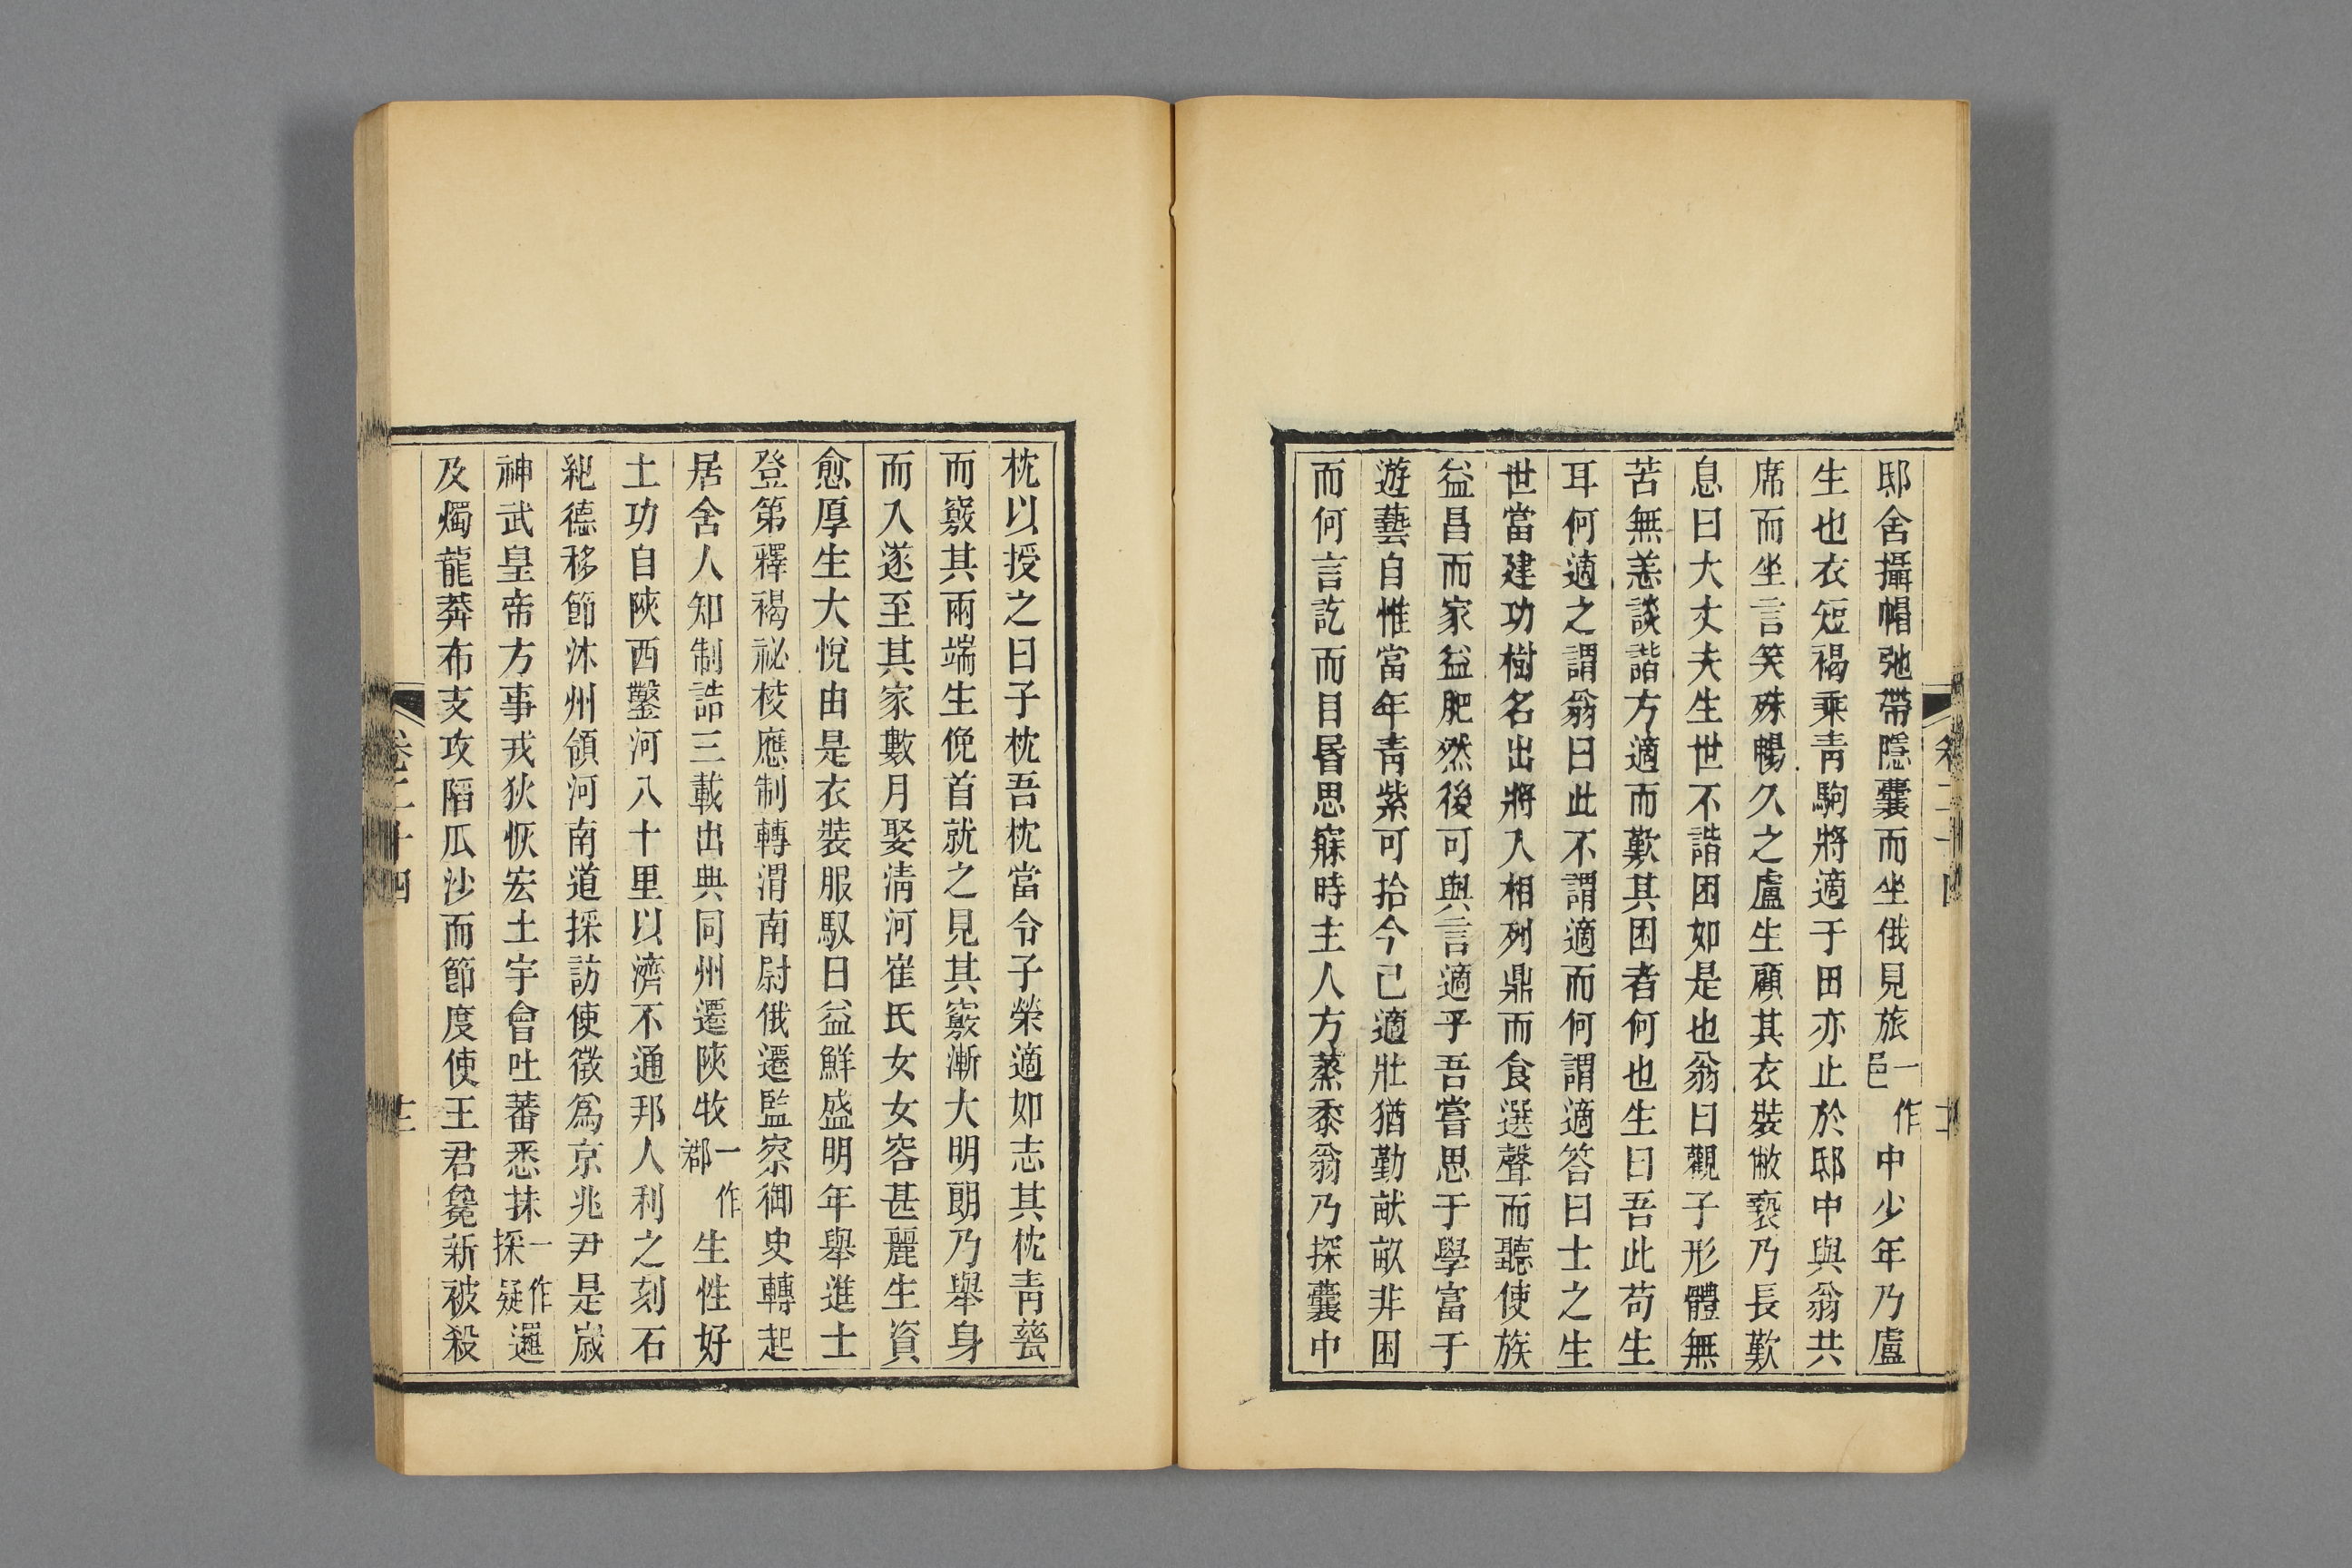 邸舍攝帽弛帶隱囊而坐俄見旅一作邑中少年乃盧
生也衣短褐乘靑駒將適于田亦止於邸中與翁共
席而坐言笑殊暢久之盧生顧其衣裝敝褻乃長歎
息曰大丈夫生世不諧困如是也翁曰觀子形體無
苦無恙談諧方適而歎其困者何也生曰吾此苟生
耳何適之謂翁曰此不謂適而何謂適答曰士之生
世當建功樹名出將入相列鼎而食選聲而聽使族
益昌而家益肥然後可與言適乎吾嘗思于學富于
遊藝自惟當年靑紫可拾今已適壯猶勤畎畝非困
而何言訖而目昬思寐時主人方蒸黍翁乃探囊中
枕以授之曰子枕吾枕當令子榮適如志其枕靑甆
而竅其兩端生俛首就之見其竅漸大明朗乃舉身
而入遂至其家數月娶淸河崔氏女女容甚麗生資
愈厚生大悅由是衣裝服馭日益鮮盛明年舉進士
登第釋褐祕校應制轉渭南尉俄遷監察御史轉起
居舍人知制誥三載出典同州遷陝牧一作郡生性好
土功自陝西鑿河八十里以濟不通邦人利之刻石
紀德移節汴州領河南道採訪使徵爲京兆尹是歲
神武皇帝方事戎狄恢宏土宇會吐蕃悉抹一作採疑邏
及燭龍莽布支攻陷瓜沙而節度使王君㚟新被殺
卷二十四